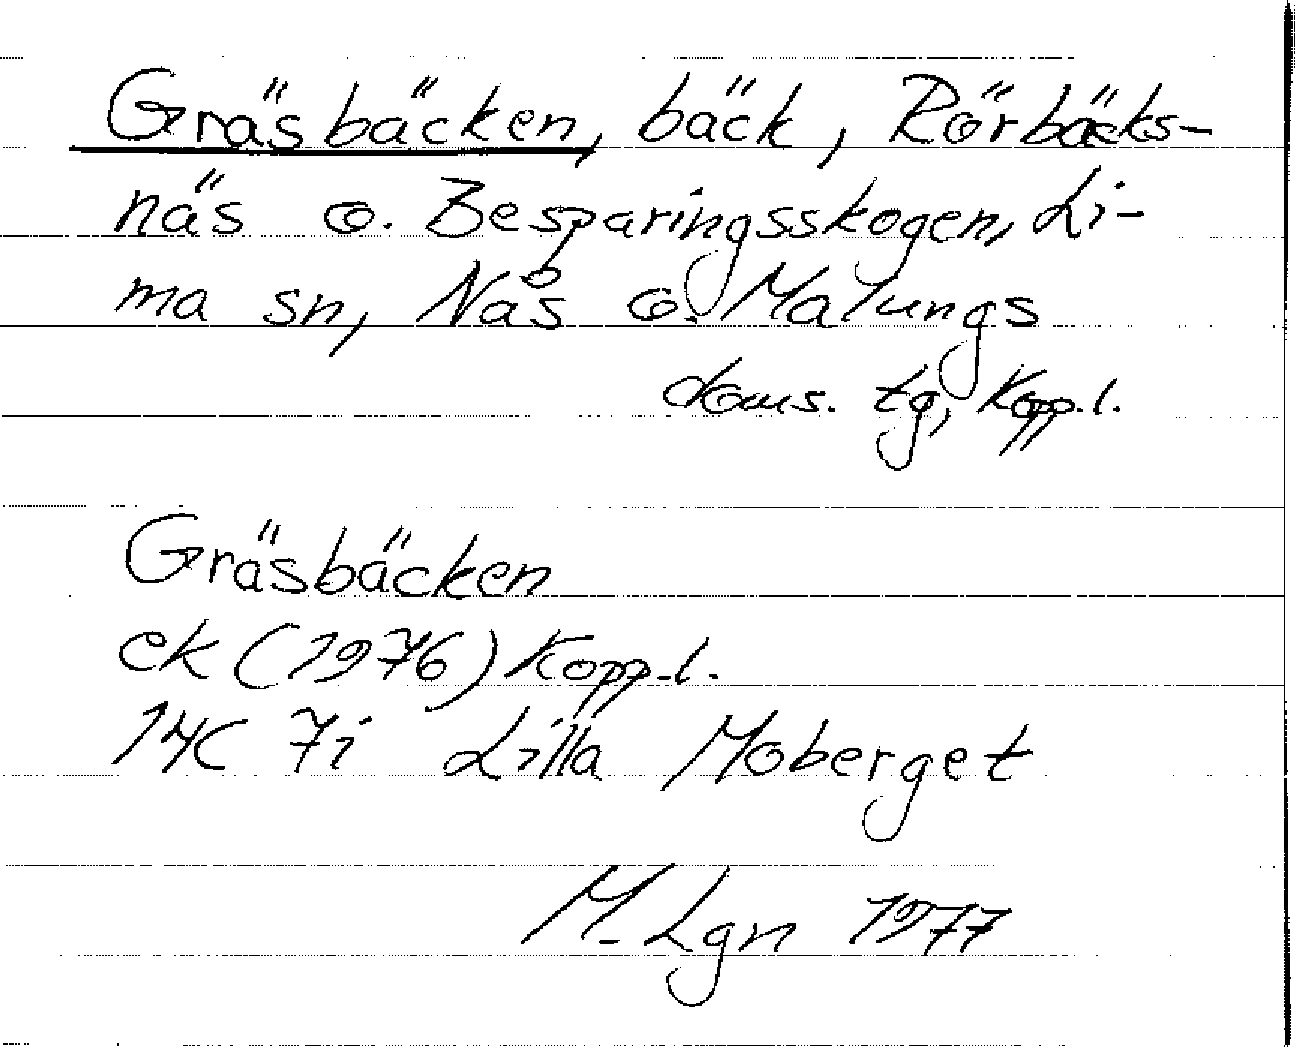 Gräsbäcken, bäck, Rörbäcks-
näs o. Besparingsskogen, Li-
ma sn, Nås o. Malungs
doms. tg, Kopp.l.
Gräsbäcken
ek (1976) Kopp.l.
14C 7i Lilla Moberget
M. Lgn 1977